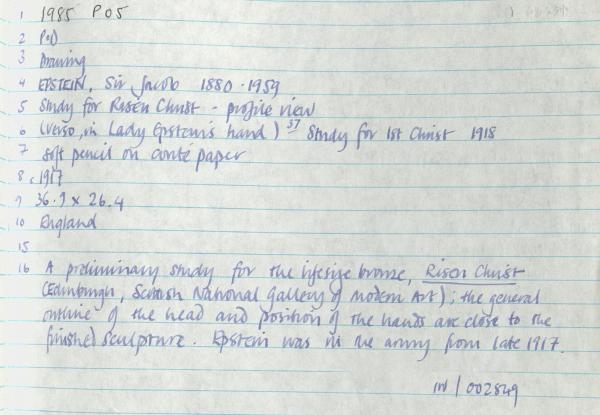 1 1985 P05
2 P&D
3 Drawing
4 EPSTEIN, Sir Jacob 1880 - 1959
5 Study for Risen Christ - profile view
6 (Verso, in Lady Epstein's hand) 37 Study for 1st Christ 1918
7 soft pencil on conté paper
8 c.1917
9 36.9 x 26.4
10 England
15
16 A preliminary study for the lifesize bronze, Risen Christ
(Edinburgh, Scottish National Gallery of Modern Art); the general
outline of the head and position of the hands are close to the
finished sculpture. Epstein was in the army from late 1917.
IN/002849